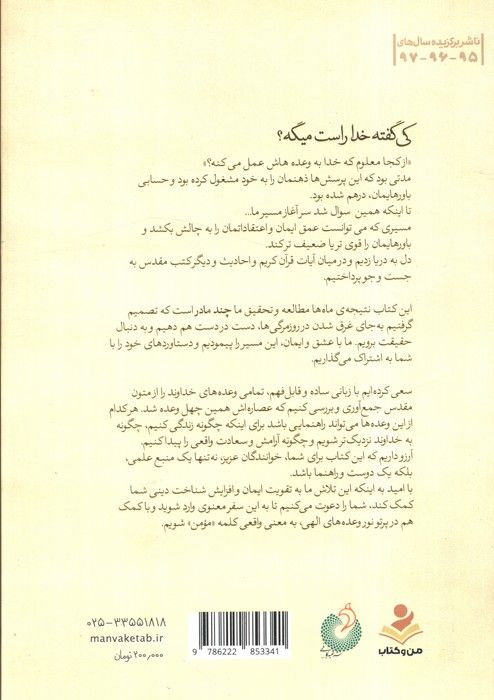 ناشر برگزیده سال‌های
۹۵-۹۶-۹۷
کی گفته خدا راست میگه؟
«از کجا معلوم که خدا به وعده هاش عمل می کنه؟»
مدتی بود که این پرسش‌ها ذهنمان را به خود مشغول کرده بود و حسابی
باورهایمان، درهم شده بود.
تا اینکه همین سوال شد سرآغاز مسیر ما...
مسیری که می توانست عمق ایمان و اعتقاداتمان را به چالش بکشد و
باورهایمان را قوی تر یا ضعیف تر کند.
دل به دریا زدیم و در میان آیات قرآن کریم و احادیث و دیگر کتب مقدس به
جست و جو پرداختیم.
این کتاب نتیجه‌ی ماه‌ها مطالعه و تحقیق ما چند مادر است که تصمیم
گرفتیم به‌جای غرق شدن در روزمرگی‌ها، دست در دست هم دهیم و به دنبال
حقیقت برویم. ما با عشق و ایمان، این مسیر را پیمودیم و دستاوردهای خود را با
شما به اشتراک می‌گذاریم.
سعی کرده‌ایم با زبانی ساده و قابل‌فهم، تمامی وعده‌های خداوند را از متون
مقدس جمع‌آوری و بررسی کنیم که عصاره‌اش همین چهل وعده شد. هرکدام
از این وعده‌ها می‌تواند راهنمایی باشد برای اینکه چگونه زندگی کنیم، چگونه
به خداوند نزدیک‌تر شویم و چگونه آرامش و سعادت واقعی را پیدا کنیم.
آرزو داریم که این کتاب برای شما، خوانندگان عزیز، نه‌تنها یک منبع علمی،
بلکه یک دوست و راهنما باشد.
با امید به اینکه این تلاش ما به تقویت ایمان و افزایش شناخت دینی شما
کمک کند، شما را دعوت می‌کنیم تا به این سفر معنوی وارد شوید و با کمک
هم در پرتو نور وعده‌های الهی، به معنی واقعی کلمه «مؤمن» شویم.
۰۲۵-۳۳۵۵۱۸۱۸
manvaketab.ir
۲۰۰,۰۰۰ تومان
9 786222 853341
من و کتاب